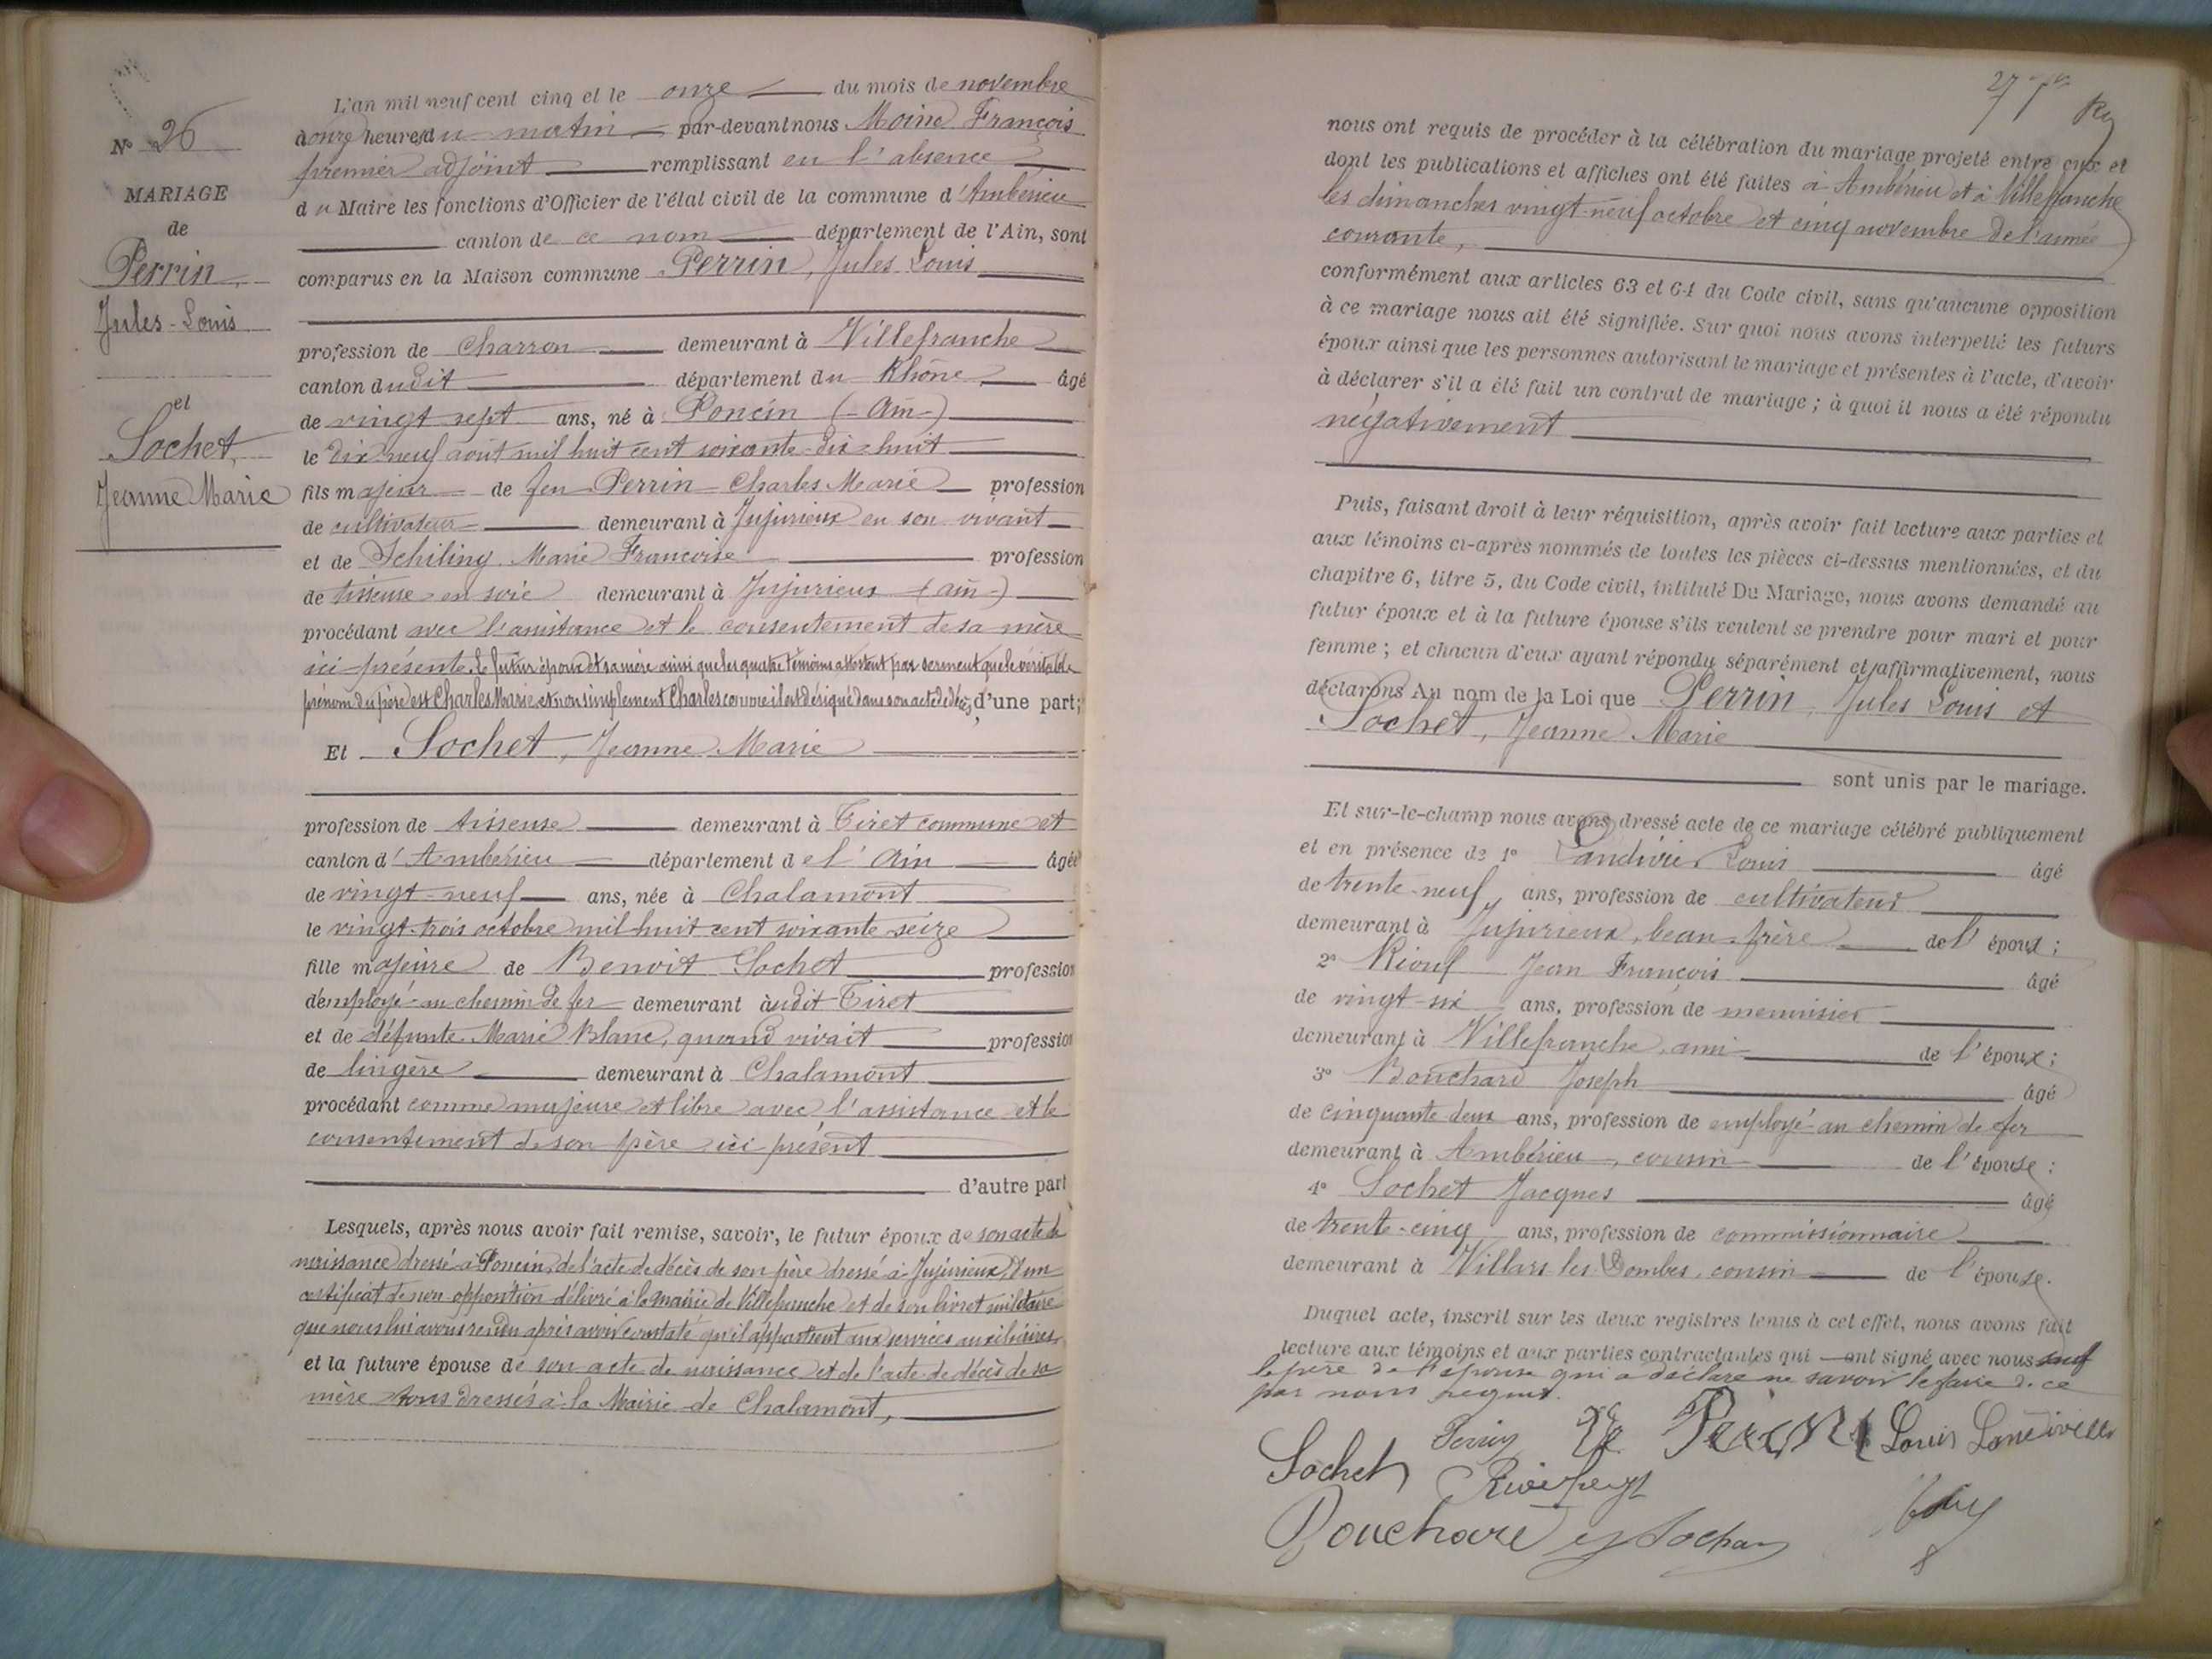 N° 26
MARIAGE
de
Perrin
Jules-Louis
et
Sochet,
Jeanne Marie
L'an mil neuf cent cinq et le onze du mois de novembre
à onze heures du matin par-devant nous Moine François
premier adjoint remplissant en l'absence
du Maire les fonctions d'Officier de l'état civil de la commune d'Ambérieu
canton de ce nom département de l'Ain, sont
comparus en la Maison commune Perrin, Jules Louis
profession de Charron demeurant à Villefranche
canton dudit département du Rhône âgé
de vingt sept ans, né à Poncin (-Ain-)
le dix neuf août mil huit cent soixante-dix-huit
fils majeur de feu Perrin Charles Marie profession
de cultivateur demeurant à Jujurieux en son vivant
et de Schiling Marie Françoise profession
de tisseuse en soie demeurant à Jujurieux (-ain-)
procédant avec l'assistance et le consentement de sa mère
ici présente. Le futur époux et sa mère ainsi que les quatre témoins attestent par serment que le véritable
prénom du père est Charles Marie et non simplement Charles comme il est désigné dans son acte de décès, d'une part;
Et Sochet, Jeanne Marie
profession de tisseuse demeurant à Tiret commune et
canton d'Ambérieu département de l'Ain âgée
de vingt-neuf ans, née à Chalamont
le vingt-trois octobre mil huit cent soixante-seize
fille majeure de Benoit Sochet profession
d'employé au chemin de fer demeurant àudit Tiret
et de défunte Marie Blanc, quand vivait profession
de lingère demeurant à Chalamont
procédant comme majeure et libre avec l'assistance et le
consentement de son père ici présent
d'autre part
Lesquels, après nous avoir fait remise, savoir, le futur époux de son acte de
naissance dressé à Poncin, de l'acte de décès de son père dressé à Jujurieux, d'un
certificat de non opposition délivré à la mairie de Villefranche et de son livret militaire
que nous lui avons rendu après avoir constaté qu'il appartient aux services auxiliaires,
et la future épouse de son acte de naissance et de l'acte de décès de sa
mère tous dressés à la Mairie de Chalamont,
27
nous ont requis de procéder à la célébration du mariage projeté entre eux et
dont les publications et affiches ont été faites à Ambérieu et à Villefranche
les dimanches vingt-neuf octobre et cinq novembre de l'année
courante,
conformément aux articles 63 et 64 du Code civil, sans qu'aucune opposition
à ce mariage nous ait été signifiée. Sur quoi nous avons interpellé les futurs
époux ainsi que les personnes autorisant le mariage et présentes à l'acte, d'avoir
à déclarer s'il a été fait un contrat de mariage ; à quoi il nous a été répondu
négativement
Puis, faisant droit à leur réquisition, après avoir fait lecture aux parties et
aux témoins ci-après nommés de toutes les pièces ci-dessus mentionnées, et du
chapitre 6, titre 5, du Code civil, intitulé Du Mariage, nous avons demandé au
futur époux et à la future épouse s'ils veulent se prendre pour mari et pour
femme ; et chacun d'eux ayant répondu séparément et affirmativement, nous
déclarons Au nom de la Loi que Perrin, Jules Louis et
Sochet, Jeanne Marie
sont unis par le mariage.
Et sur-le-champ nous avons dressé acte de ce mariage célébré publiquement
et en présence de 1° Landivier Louis âgé
de trente-neuf ans, profession de cultivateur
demeurant à Jujurieux, beau-frère de l'époux ;
2° Jean François âgé
de vingt-six ans, profession de menuisier
demeurant à Villefranche, ami de l'époux ;
3° Bouchard Joseph âgé
de cinquante-deux ans, profession de employé au chemin de fer
demeurant à Ambérieu, cousin de l'épouse ;
4° Sochet Jacques âgé
de trente-cinq ans, profession de commissionnaire
demeurant à Villars les Dombes, cousin de l'épouse.
Duquel acte, inscrit sur les deux registres tenus à cet effet, nous avons fait
lecture aux témoins et aux parties contractantes qui ont signé avec nous sauf
le père de l'épouse qui a déclaré ne savoir le faire de ce
par nous requis.
Perrin Louis Landivier
Sochet
Bouchard